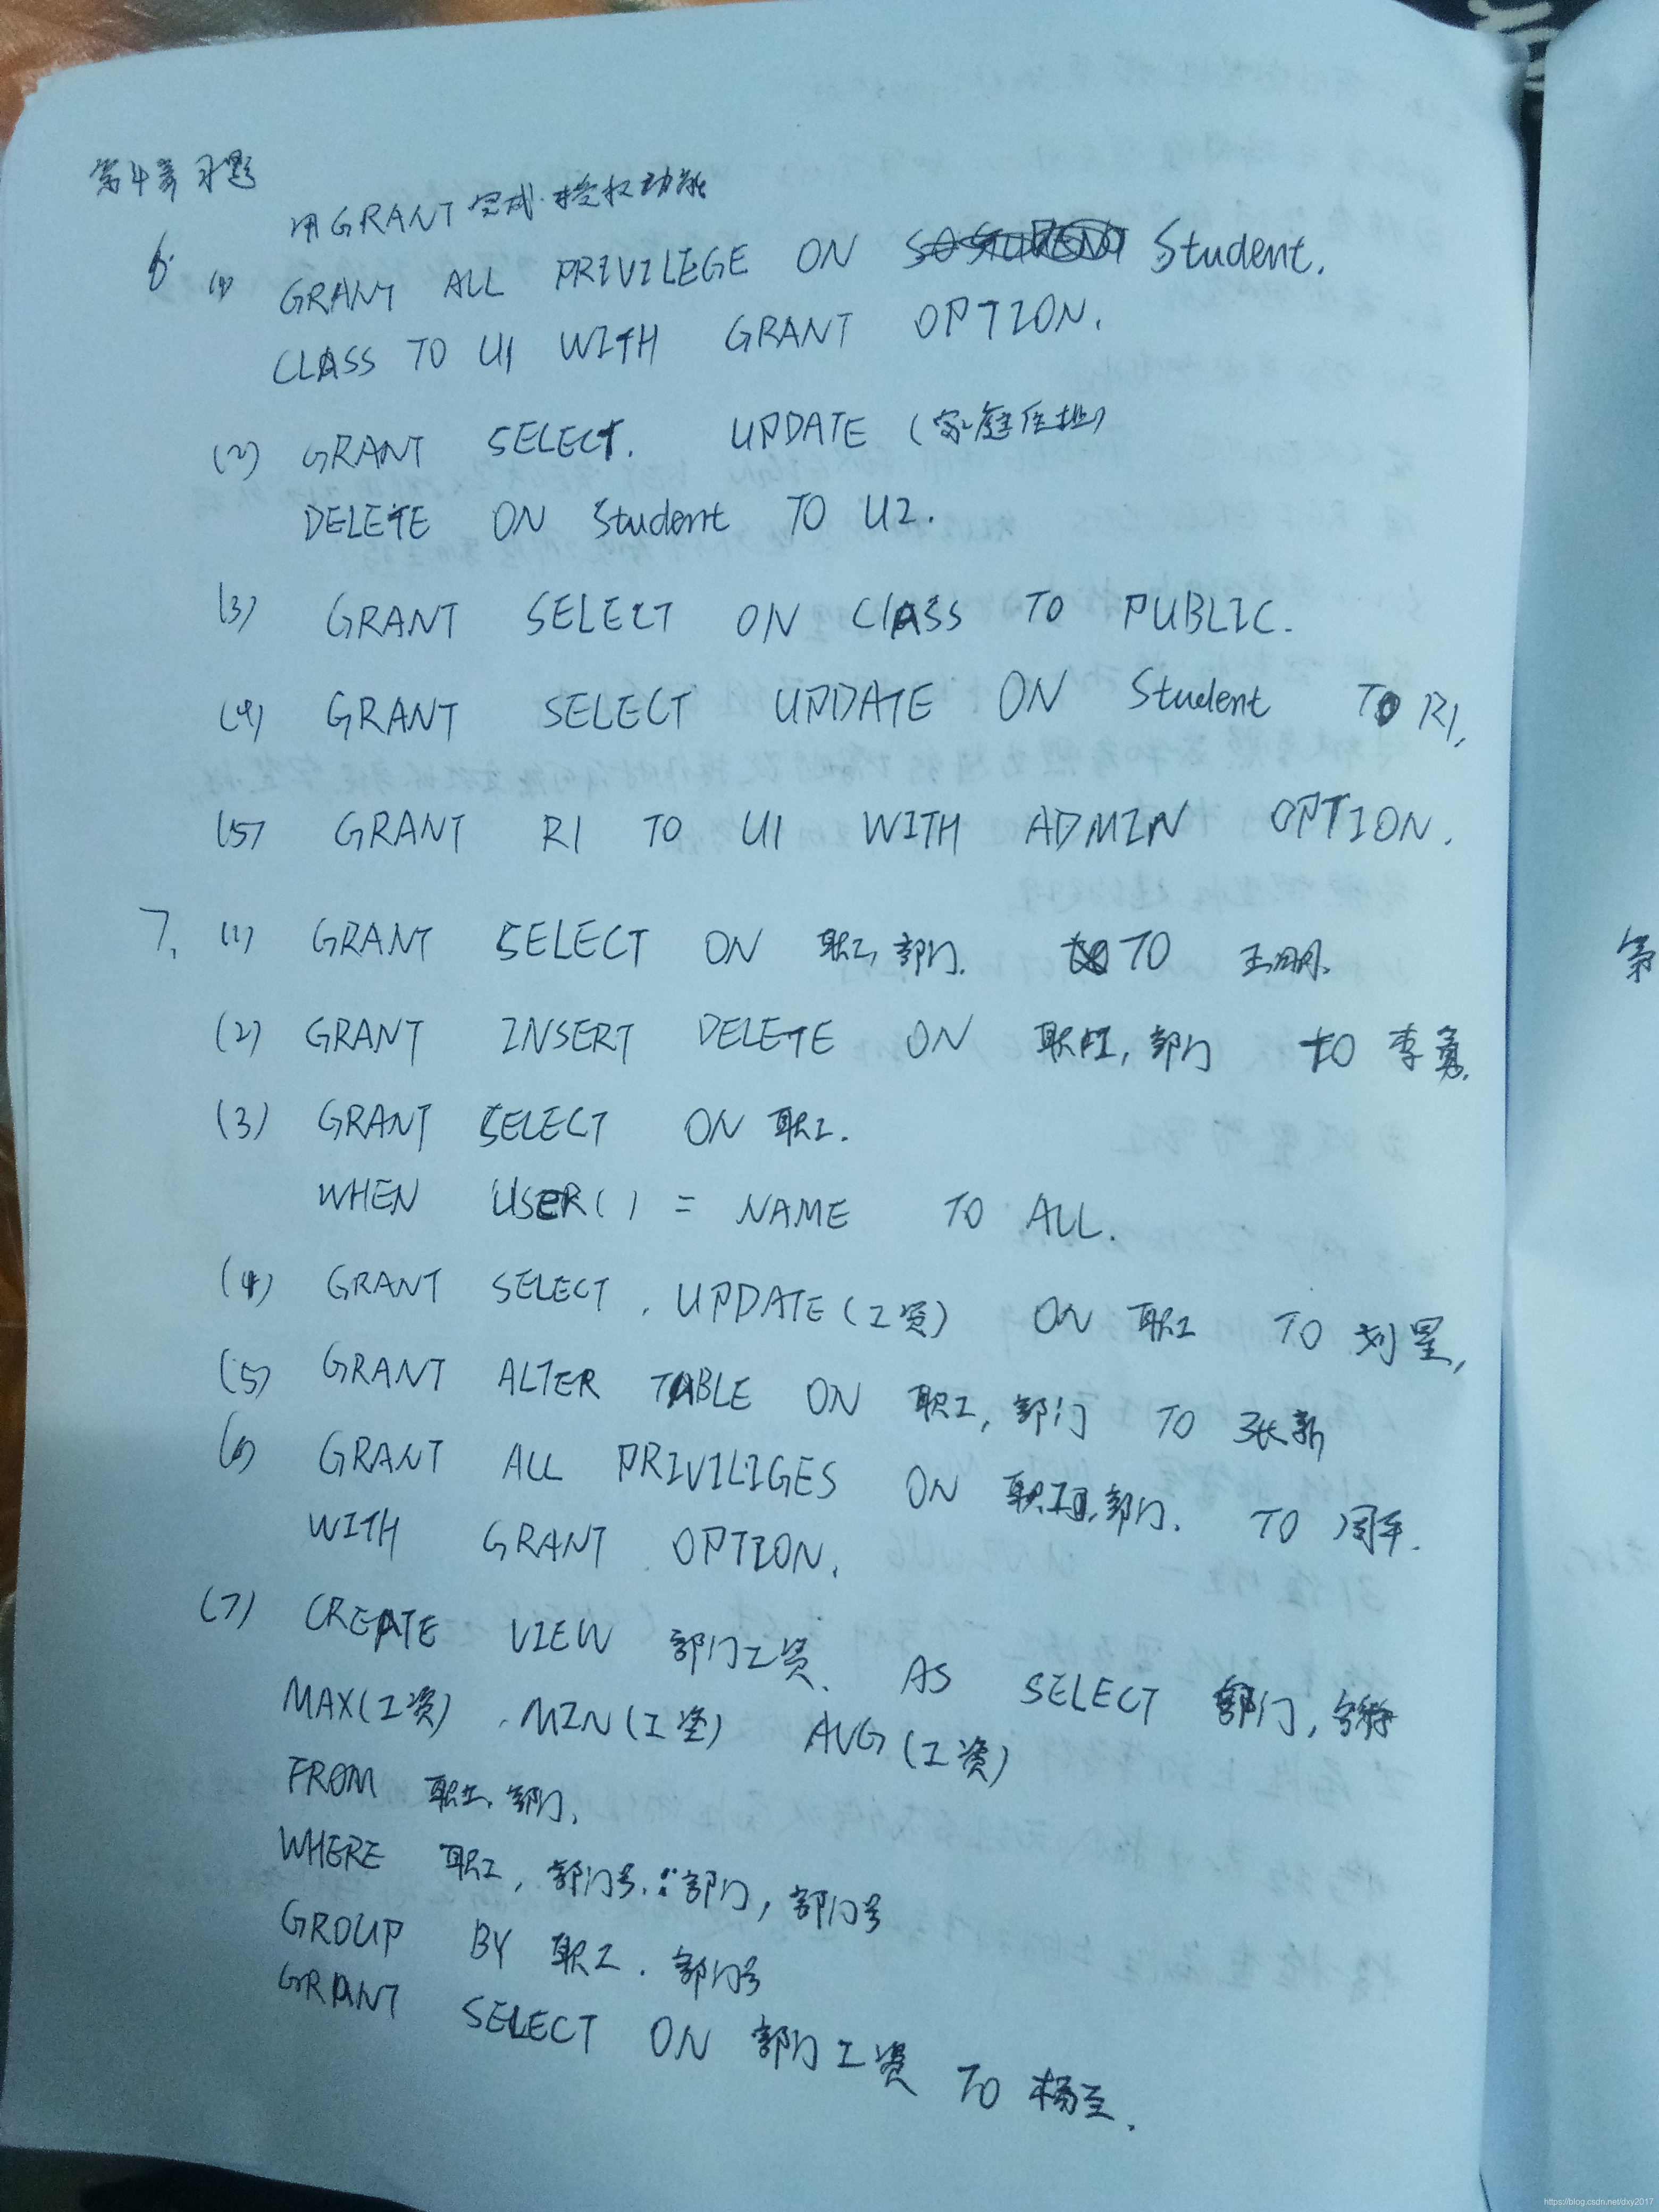 第4章习题
用GRANT完成授权功能
6. (1) GRANT ALL PRIVILEGE ON Student.
CLASS TO U1 WITH GRANT OPTION.
(2) GRANT SELECT. UPDATE (家庭住址)
DELETE ON Student TO U2.
(3) GRANT SELECT ON ClASS TO PUBLIC.
(4) GRANT SELECT UPDATE ON Student TO R1,
(5) GRANT R1 TO U1 WITH ADMIN OPTION.
7. (1) GRANT SELECT ON 职工,部门. TO 王明.
(2) GRANT INSERT DELETE ON 职工, 部门 to 李勇.
(3) GRANT SELECT ON 职工.
WHEN USER() = NAME TO ALL.
(4) GRANT SELECT, UPDATE(工资) ON 职工 TO 刘星,
(5) GRANT ALTER TABLE ON 职工, 部门 TO 张新
(6) GRANT ALL PRIVILIGES ON 职工,部门. TO 周平.
WITH GRANT OPTION.
(7) CREATE VIEW 部门工资. AS SELECT 部门,
MAX(工资), MIN(工资) AVG(工资)
FROM 职工,部门,
WHERE 职工, 部门号 = 部门, 部门号
GROUP BY 职工. 部门号
GRANT SELECT ON 部门工资 TO 杨兰.
第
https://blog.csdn.net/dxy2017